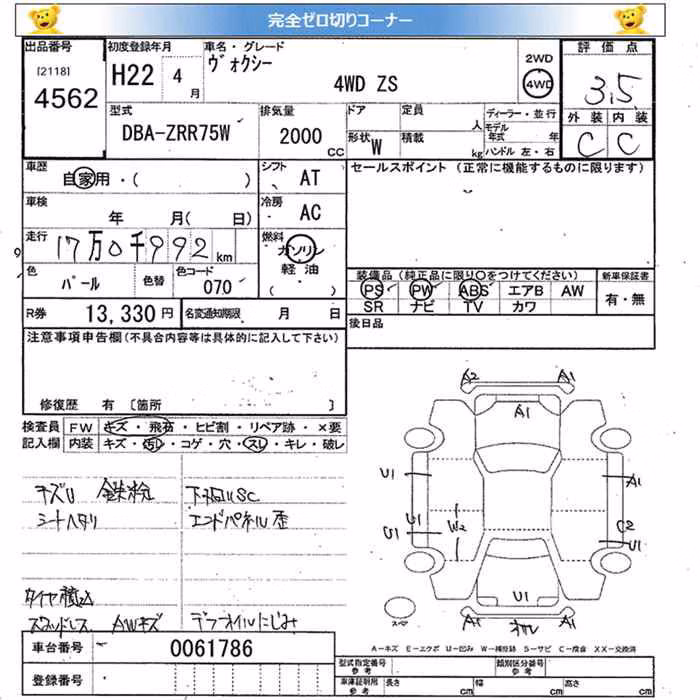 完全ゼロ切りコーナー
出品番号 初度登録年月 車名・グレード 2WD 評価点
[2118] H22 4月 ヴォクシー 4WD
4562 4WD ZS 3.5
型式 排気量 ドア 定員 人 ディーラー・並行 外装 内装
DBA-ZRR75W 2000 CC 形状 W 積載 kg モデル年式 年 ハンドル 左・右 C C
車歴 自家用・( ) シフト AT セールスポイント (正常に機能するものに限ります)
車検 年 月( 日) 冷房 AC
走行 17万0千992km 燃料 ガソリン
色 パール 色替 色コード 070 軽油 ( )
装備品 (純正品に限り〇をつけてください) 新車保証書
PS PW ABS エアB AW 有・無
SR ナビ TV カワ
R券 13,330円 名変通知期限 月 日 後日品
注意事項申告欄(不具合内容等は具体的に記入して下さい)
修復歴 有 〔箇所 〕
検査員 FW キズ・飛石・ヒビ割・リペア跡・×要
記入欄 内装 キズ・汚レ・コゲ・穴・スレ・キレ・破レ
A2 A1
A1
U1 A1
U1 W2 C2
U1 U1
U1
A1 A1
キズU 鉄粉 下廻りSC
シートヘタリ エンドパネル歪
タイヤ積込
スタッドレス AWキズ デフオイルにじみ
A-キズ E-エクボ U-凹み W-補修跡 S-サビ C-腐食 XX-交換済
車台番号 0061786
登録番号
型式指定番号 参考 類別区分番号 参考
車庫証明用 参考 長さ cm 幅 cm 高さ cm